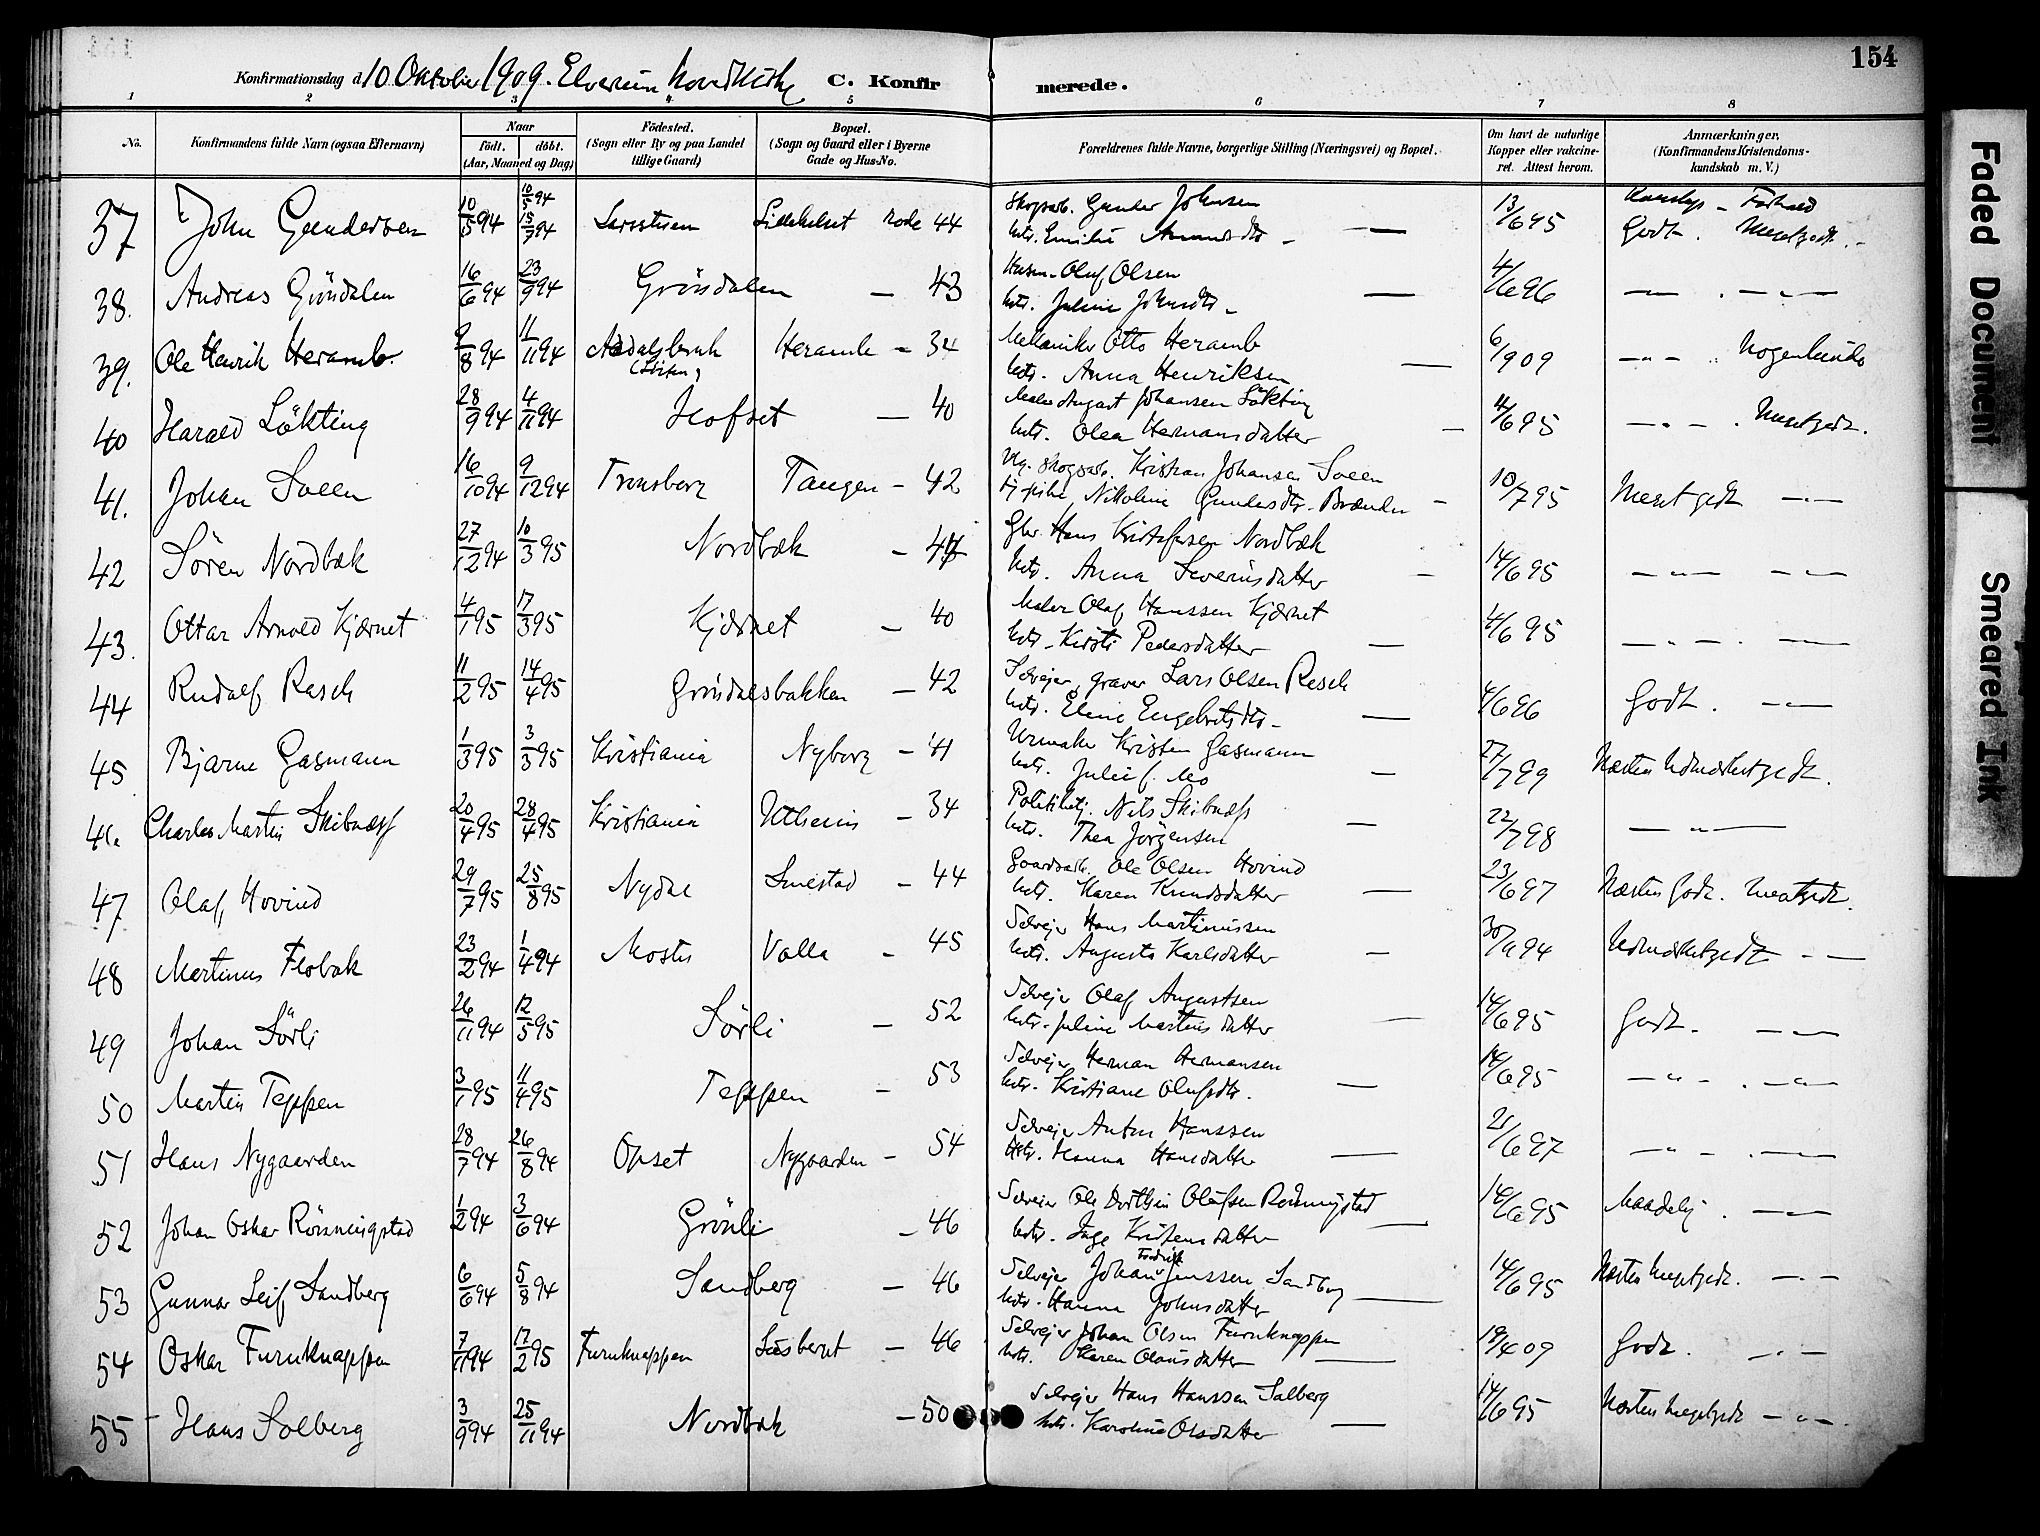 154
Konfirmationsdag d. 10 Oktober 1909. Elverum hovedkirke C. Konfirmerede.
1 2 3 4 5 6 7 8
No. Konfirmandens fulde Navn (ogsaa Efternavn) Naar Födt. döbt. (Aar, Maaned og Dag) Födested. (Sogn eller By og paa Landet tillige Gaard) Bopæl. (Sogn og Gaard eller i Byerne Gade og Hus-No. Forældrenes fulde Navne, borgerlige Stilling (Næringsvei) og Bopæl. Om havt de naturlige Kopper eller vaccineret. Attest herom. Anmærkninger. (Konfirmandens Kristendomskundskab m. V.)
37 John Gundersen 10/5 94 10/5 94 15/7 94 rode 44 Skogsarb. Gunder Johnsen 13/6 95 Kundsk. – Forhold
hstr. Emilie Amundsdtr – Godt. Megetgodt.
38. Andreas Gröndalen 16/6 94 23/9 94 Gröndalen — 43 Husm. Oluf Olsen 4/6 96
hstr. Juline Johnsdtr –
39. Ole Henrik Heramb 9/8 94 11/11 94 Aadalsbruk (Löiten) Heramb – 34 Mekaniker Otto Heramb 6/9 09 Nogenlunde
hstr. Anna Henriksen
40 Harald Lökting 28/9 94 4/11 94 Hofset — 40 Maler August Johansen Lökting 4/6 95 — " — . Megetgodt.
hstr. Olea Hermansdatter
41. Johan Soeen 16/10 94 9/12 94 Tronsberg Tangen – 42 Ug. skogsarb. Kristian Johansen Soeen 10/7 95 Meget godt — " —
og pike Nikoline Gundersdtr. Brænden
42 Sören Nordbæk 27/12 94 10/3 95 Nordbæk Gbr. Hans Kristofersen Nordbæk 14/6 95 — " — — " —
hstr. Anna Severinsdatter
43. Ottar Arnold Kjærnet 4/1 95 17/3 95 Kjærnet — 40 Maler Olaf Hanssen Kjærnet 4/6 95
hstr. Kirsti Pedersdatter
44 Rudolf Resch 11/2 95 14/4 95 Gröndalsbakken — 42 Selveier, graver Lars Olsen Resch 4/6 96 Godt. — " —
hstr. Eline Engebretsdtr –
45 Bjarne Gasmann 1/3 95 3/3 95 Kristiania Nyborg – 41 Urmaker Kristen Gasmann 27/7 99 Næsten Udmærketgodt.
hstr. Julie f. Mo
46. Charles Martin Skibnæss 20/4 95 28/4 95 Kristiania Utheim – 34 Politibetj. Nils Skibnæss 22/7 98 — " —
hstr. Thea Jörgensen
47 Olaf Hovind 29/7 95 25/8 95 Nydal Smestad – 44 Gaardsarb. Ole Olsen Hovind 23/6 97 Næsten Godt. Megetgodt.
hstr. Karen Knudsdatter
48 Martinus Flobak 23/2 94 1/4 94 Valla – 45 Selveier Hans Martinussen 30/11 94 Udmærketgodt – " —
hstr. Augusta Karlsdatter
49 Johan Sörli 26/11 94 12/5 95 Sörli — 52 Selveier Olaf Augustsen 14/6 95 Godt. — " —
hstr. Juline Martinsdatter
50 Martin Teppen 3/1 95 11/4 95 Teppen – 53 Selveier Herman Hermansen 14/6 95 — " — . — " —
hstr. Kristiane Olufsdtr.
51 Hans Nygaarden 28/7 94 26/8 94 Opset Nygaarden – 54 Selveier Anton Hanssen 21/6 97 — " — . — " —
hstr. Hanna Hansdatter
52 Johan Oskar Rönningstad 1/2 94 3/6 94 Grönli — 46 Selveier Ole Olafsen Rönningstad 14/6 95 Maadelig. — " —
hstr. Inge Kristensdatter
53 Gunnar Leif Sandberg 6/6 94 5/8 94 Sandberg — 46 Selveier Johan Fredrik Jenssen Sandberg 14/6 95 Næsten Megetgodt. — " —
hstr. Hanna Johnsdatter
54 Oskar Furuknappen 7/11 94 17/2 95 Furuknappen – 46 Selveier Johan Olsen Furuknappen 19/4 09 Godt. — " —
hstr. Karen Olausdatter
55 Hans Solberg 3/9 94 25/11 94 Nordbæk — 50 Selveier Hans Hanssen Solberg 14/6 95 Næsten Megetgodt — " —
hstr. Karoline Olsdatter
Faded Document
Smeared Ink